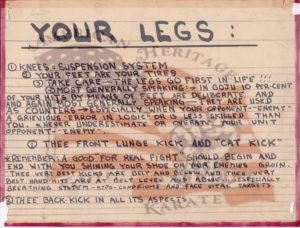 YOUR LEGS :
① KNEES = SUSPENSION SYSTEM
② YOUR FEET ARE YOUR TIRES
③ TAKE CARE - THE LEGS GO FIRST IN LIFE !!!
MOST GENERALLY SPEAKING IN GOJU 10 PER CENT
OF YOUR KILLS BY MEANS OF FEET ARE DELIBERATE AND
AND AGAIN MOST GENERALLY SPEAKING THEY ARE USED
AS COUNTERS ESPECIALLY WHEN YOUR OPPONENT-ENEMY
A GRIEVIOUS "ERROR IN LOGIC" OR IS LESS SKILLED THAN
YOU. NEVER UNDERESTIMATE OR OVERATE YOUR UNIT
OPPONENT-ENEMY
① THEE FRONT LUNGE KICK AND "CAT KICK"
REMEMBER: A GOOD FOR REAL FIGHT SHOULD BEGIN AND
END WITH YOU SHINING YOUR SHOE ON YOUR ENEMIES GROIN.
THEE VERY BEST KICKS ARE BELT AND BELOW AND THEE VERY
BEST HAND HITS ARE AT BELT LEVEL AND ABOVE...ESPECIALLY
BREATHING SYSTEM AND FACE VITAL TARGETS.
② THEE BACK KICK IN ALL ITS ASPECTS
American Heritage
Karate